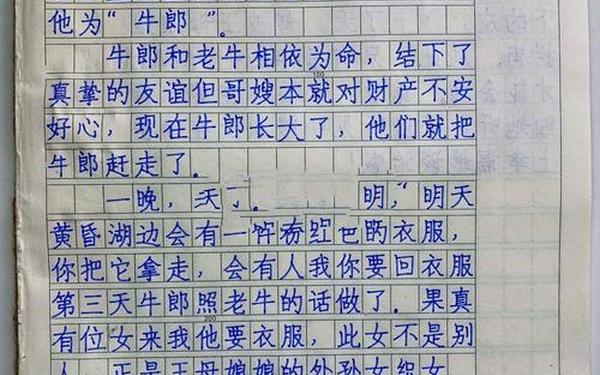 他为“牛郎”。
牛郎和老牛相依为命，结下了
真挚的友谊但哥嫂本就对财产不安
好心，现在牛郎长大了，他们就把
牛郎赶走了。
一晚，天了。 明，“明天
黄昏湖边会有一件粉红色的衣服，
你把它拿走，会有人我你要回衣服
第三天牛郎照老牛的话做了。果真
有位女来我他要衣服，此女不是别
人，正是王母娘娘的外孙女织女
100
200